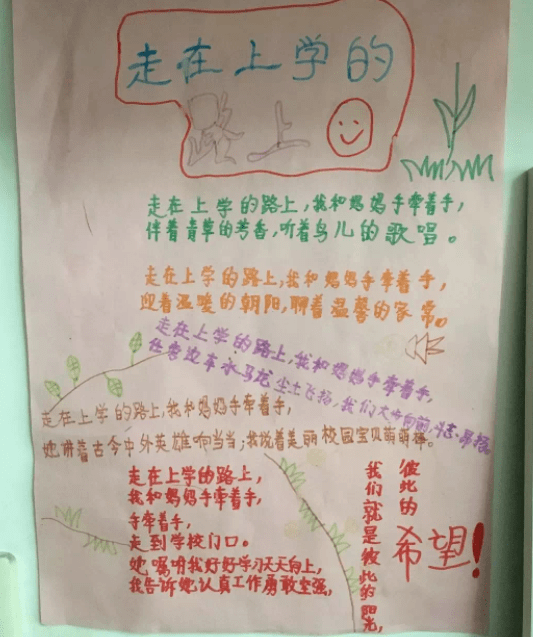 走在上学的
路上
走在上学的路上,我和妈妈手牵着手,
伴着青草的芳香,听着鸟儿的歌唱。
走在上学的路上,我和妈妈手牵着手,
迎着温暖的朝阳,聊着温馨的家常。
走在上学的路上,我和妈妈手牵着手,
任旁边车水马龙尘土飞扬,我们大步向前,斗志昂扬
走在上学的路上,我和妈妈手牵着手,
她讲着古今中外英雄响当当;我说着美丽校园宝贝萌萌
走在上学的路上,
我和妈妈手牵着手,
手牵着手,
走到学校门口。
她嘱咐我好好学习天天向上,
我告诉她认真工作勇敢坚强,
我们就是彼此的阳光,
彼此的
希望!